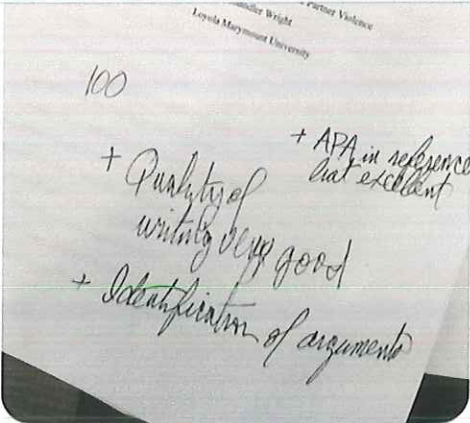 Partner Violence
Wright
Loyola Marymount University
100
+ APA in reference
list excellent
+ Quality of
writing very good
+ Identification of arguments